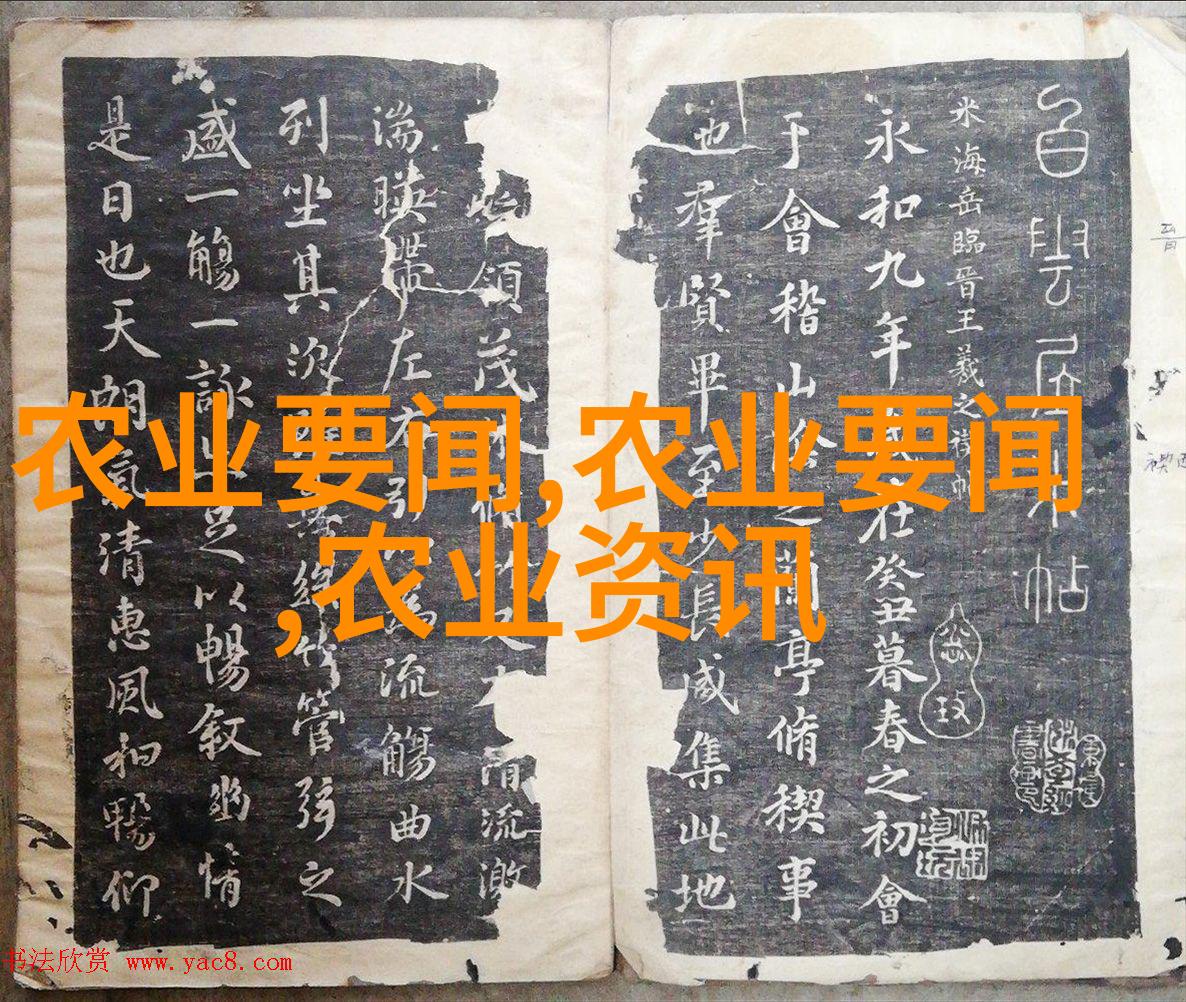 农业要闻,农业要闻
,农业资讯
白雲居米帖
米海岳臨晉王羲之禊帖
永和九年歲在癸丑暮春之初會
于會稽山陰之蘭亭脩稧事
也羣賢畢至少長咸集此地
領茂林脩竹又有清流激
湍暎帶左右引以為流觴曲水
列坐其次雖無絲竹管弦之
盛一觴一詠亦足以暢敘幽情
是日也天朗氣清惠風和暢仰
书法欣赏 www.yac8.com